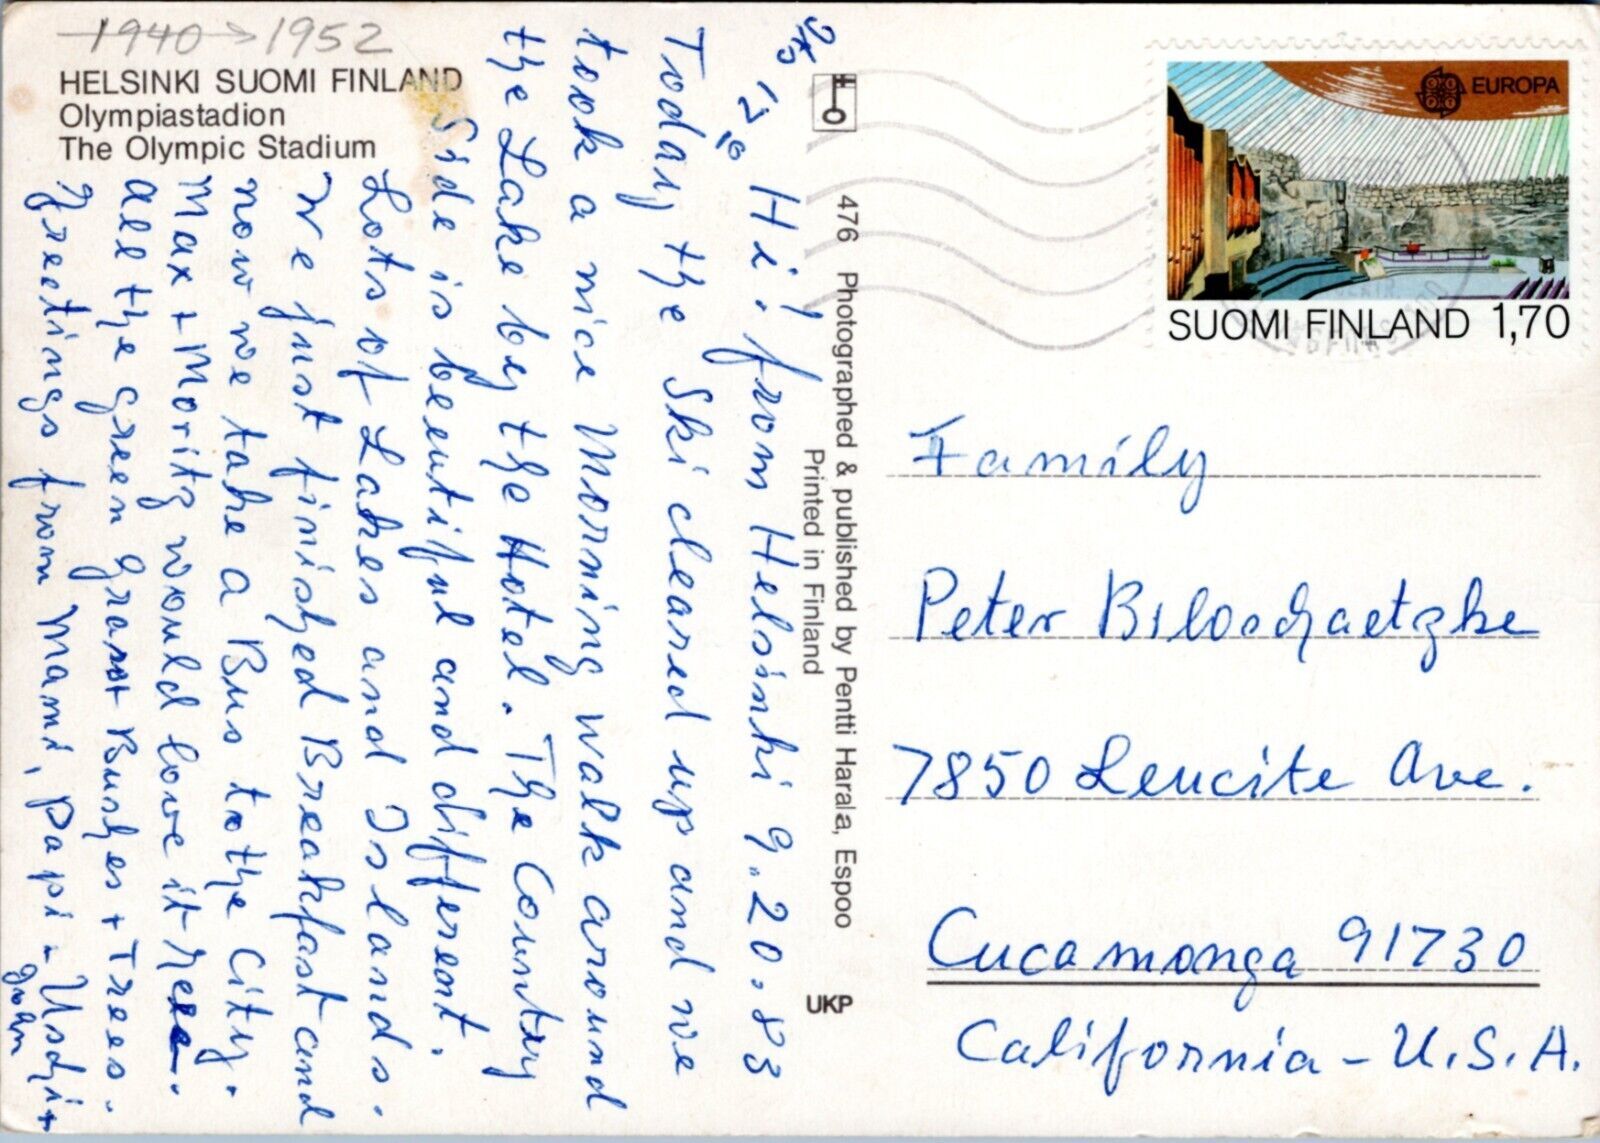 1940 → 1952
HELSINKI SUOMI FINLAND
Olympiastadion
The Olympic Stadium
Hi, from Helsinki 9.20.83
Today the Ski cleared up and we
took a nice Morning walk around
the Lake by the Hotel. The Country
Side is beutiful and different.
Lots of Lakes and Islands.
We just finished Breakfast and
now we take a Bus to the City.
Max + Moritz would love it here.
All the green Grass + Bushes + Trees.
Greetings from Mami, Papi
476 Photographed & published by Pentti Harala, Espoo
Printed in Finland
UKP
EUROPA
SUOMI FINLAND 1,70
Family
Peter Biloschaetzke
7850 Leucite Ave.
Cucamonga 91730
California - U.S.A.